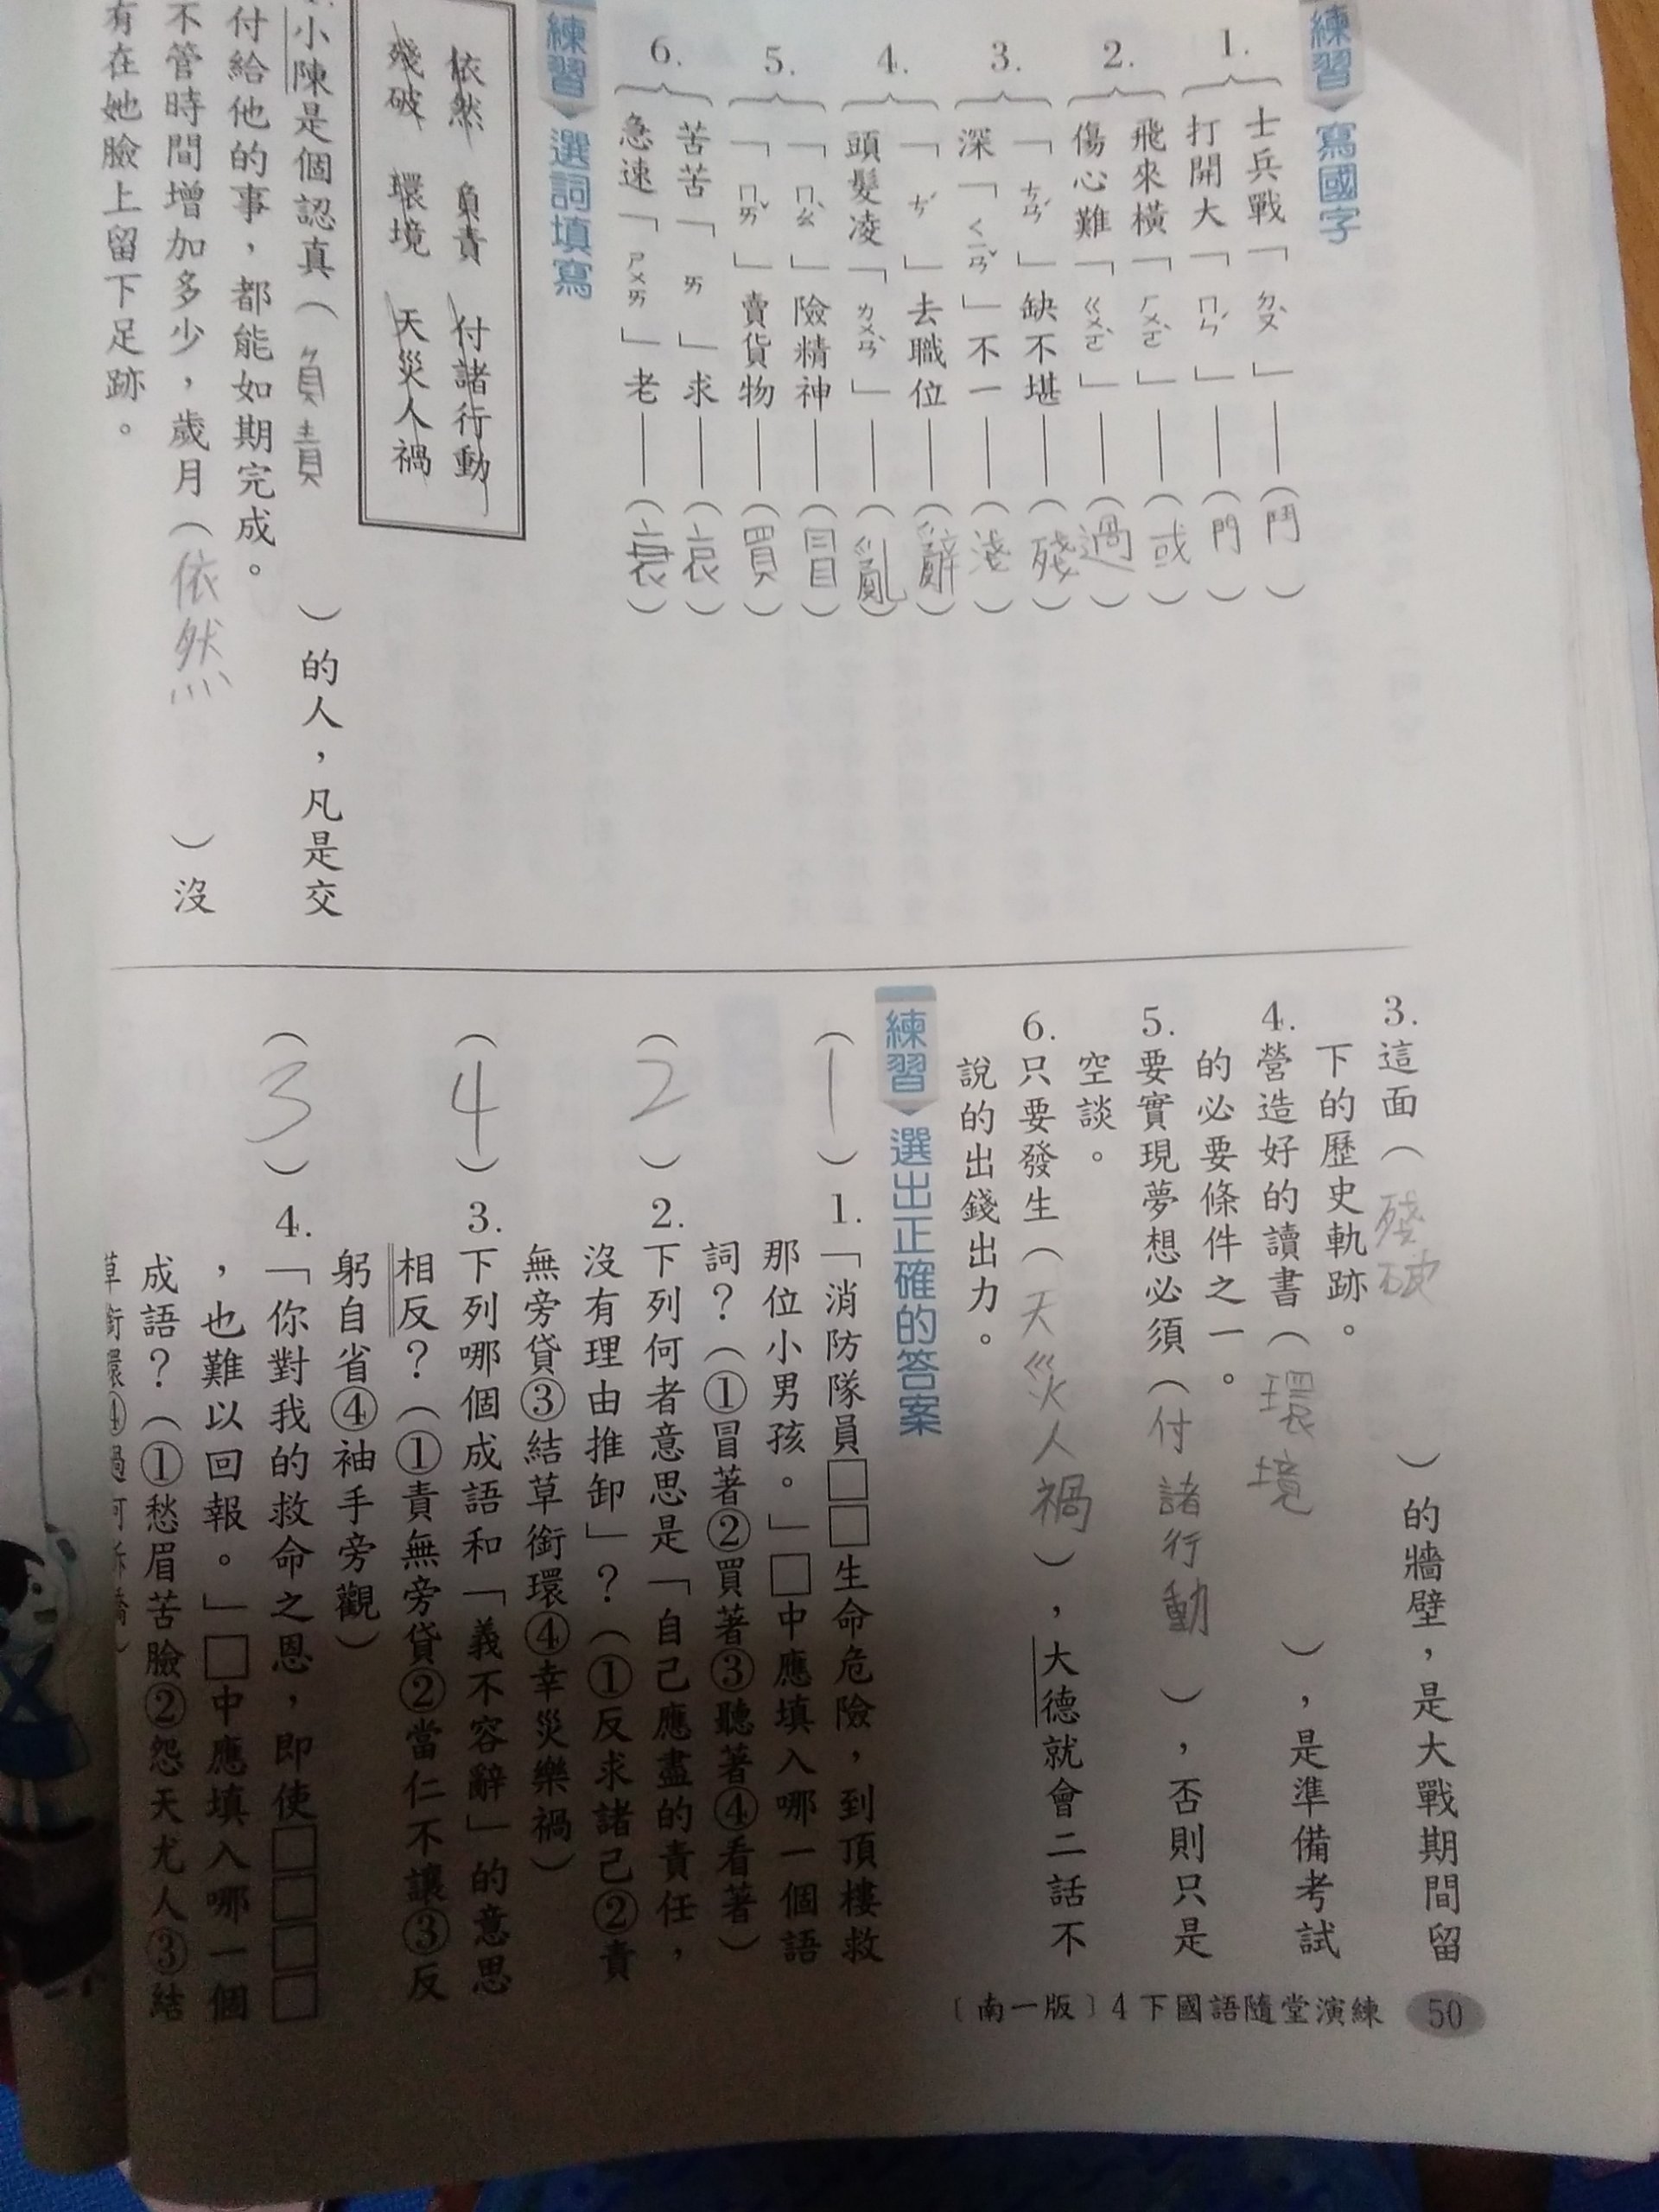 練習 寫國字
1. 士兵戰「ㄉㄡˋ」──(鬥)
打開大「ㄇㄣˊ」──(門)
2. 飛來橫「ㄏㄨㄛˋ」──()
傷心難「ㄍㄨㄛˋ」──(過)
3. 「ㄘㄢˊ」缺不堪──(殘)
深「ㄑㄧㄢˇ」不一──(淺)
4. 「ㄘˊ」去職位──(辭)
頭髮凌「ㄌㄨㄢˋ」──(亂)
5. 「ㄇㄠˋ」險精神──(冒)
「ㄇㄞˇ」賣貨物──(買)
6. 苦苦「ㄞ」求──(哀)
急速「ㄕㄨㄞ」老──(衰)
練習 選詞填寫
依然 負責 付諸行動
殘破 環境 天災人禍
小陳是個認真(負責)的人,凡是交
付給他的事,都能如期完成。
不管時間增加多少,歲月(依然)沒
有在她臉上留下足跡。
3. 這面(殘破)的牆壁,是大戰期間留
下的歷史軌跡。
4. 營造好的讀書(環境),是準備考試
的必要條件之一。
5. 要實現夢想必須(付諸行動),否則只是
空談。
6. 只要發生(天災人禍),大德就會二話不
說的出錢出力。
練習 選出正確的答案
(1)1. 「消防隊員□□生命危險,到頂樓救
那位小男孩。」□中應填入哪一個語
詞?(①冒著②買著③聽著④看著)
(2)2. 下列何者意思是「自己應盡的責任,
沒有理由推卸」?(①反求諸己②責
無旁貸③結草銜環④幸災樂禍)
(4)3. 下列哪個成語和「義不容辭」的意思
相反?(①責無旁貸②當仁不讓③反
躬自省④袖手旁觀)
(3)4. 「你對我的救命之恩,即使□□□□
,也難以回報。」□中應填入哪一個
成語?(①愁眉苦臉②怨天尤人③結
草銜環④)
〔南一版〕4下國語隨堂演練 50